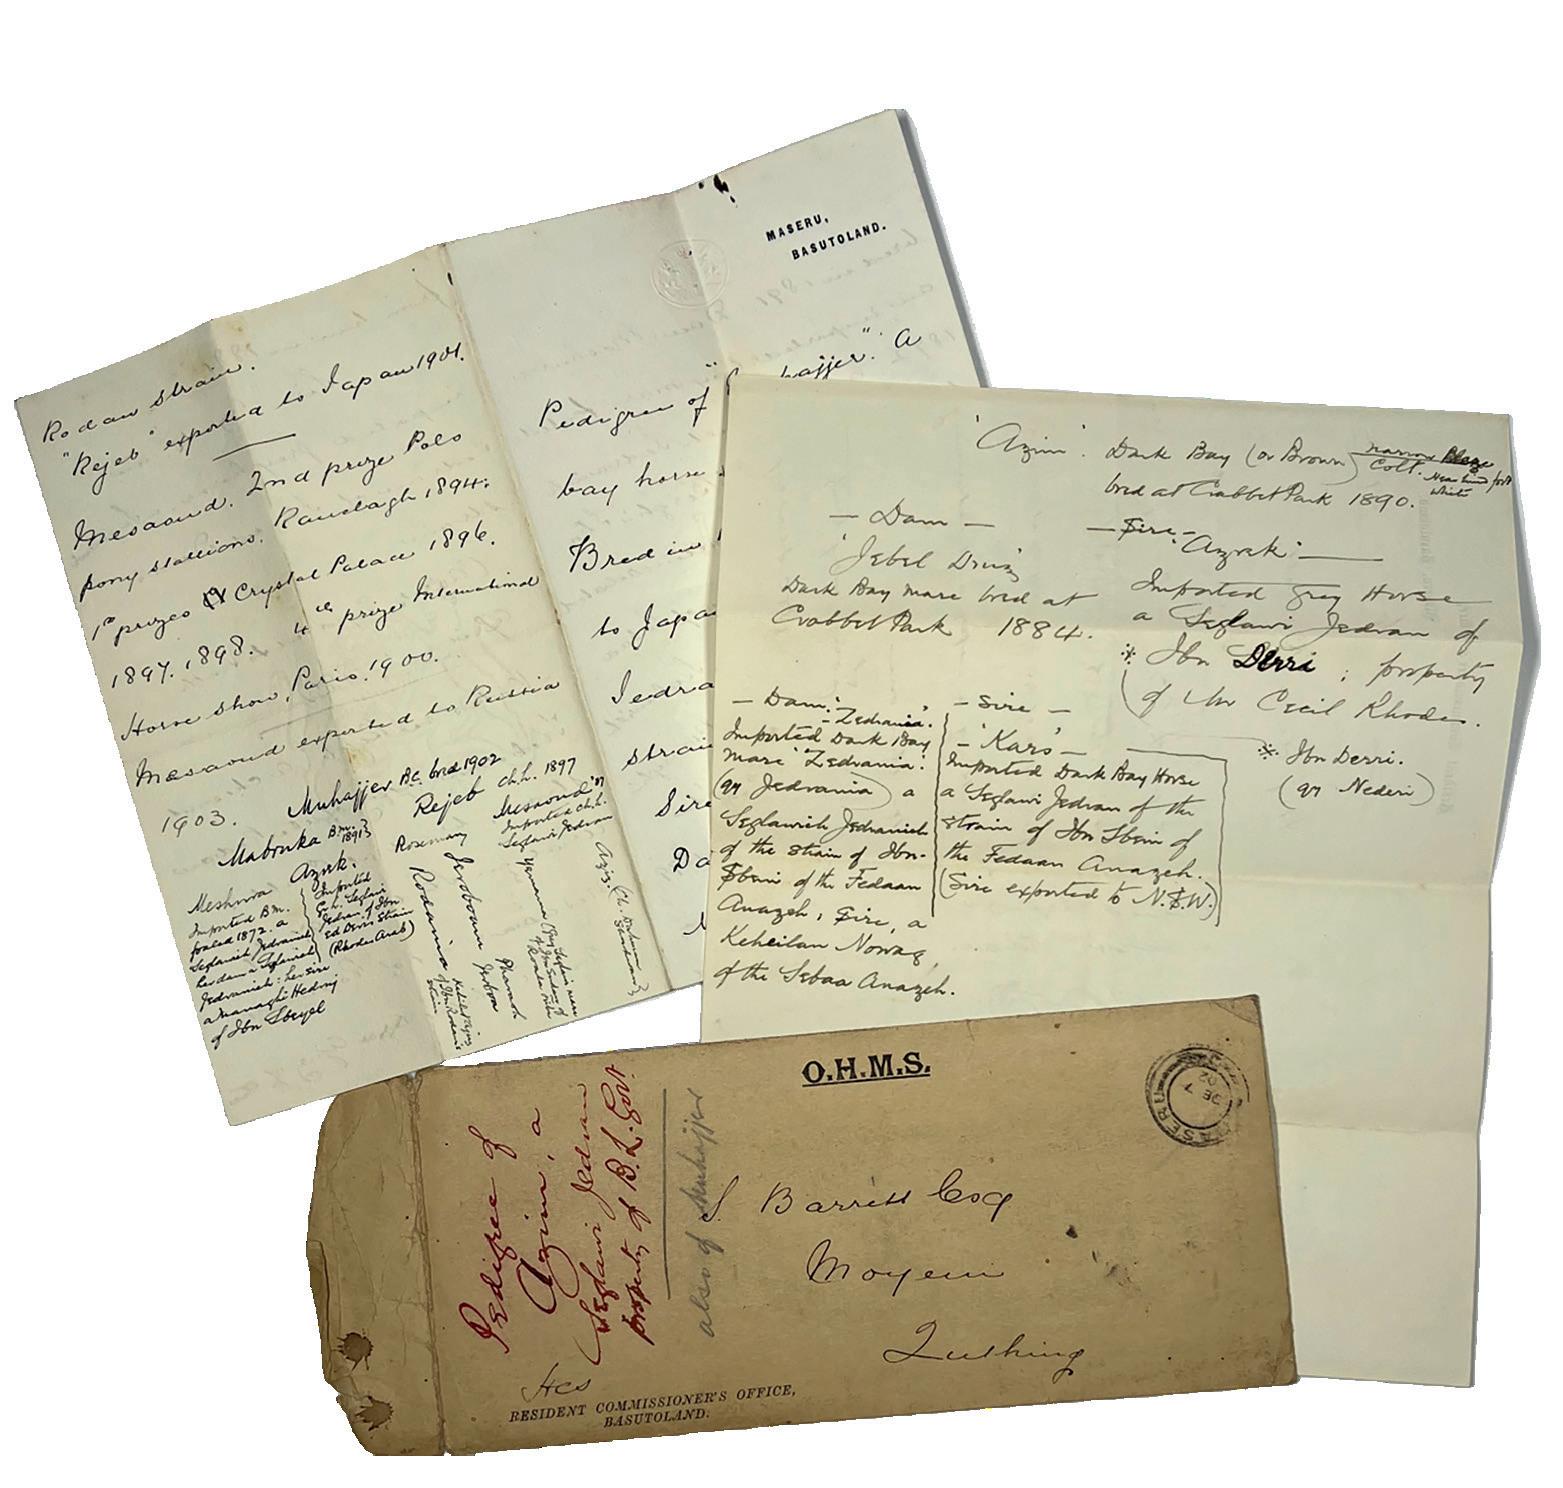 Rodan strain.
"Rejeb" exported to Japan 1901.
Mesaoud. 2nd prize Polo
pony stallions. Ranelagh 1894.
1st prizes Crystal Palace 1896.
1897. 1898. 4th prize International
Horse show, Paris. 1900.
Mesaoud exported to Russia
1903.
Muhajjer B.C. bred 1902
Mabruka B.m. 1891
Rejeb ch.h. 1897
Meshura
Imported B.m.
foaled 1872. a
Seglawieh Jedranieh
her dam a Seglawieh
Jedranieh: her sire
a Managhi Hedruj
of Ibn Sbeyel
Azrek.
Imported
Gr.h. Seglawi
Jedran of Ibn
ed Derri Strain
(Rhodes Arab)
Rosemary
Jeroboam
Rodania
Pharaoh
Jerboa
Mesaoud '87
Imported ch.h.
Seglawi Jedran
Yemama
Aziz.
MASERU,
BASUTOLAND.
Pedigree of " hajjer". A
bay horse
Bred in
to Japa
Jedra
strai
Sire
Da
'Azim'. Dark Bay (or Brown) Colt. narrow Blaze
Near hind foot
white
bred at Crabbet Park 1890.
— Dam —
'Jebel Druz'
Dark Bay mare bred at
Crabbet Park 1884.
— Sire —
'Azrek' —
Imported Grey Horse
a Seglawi Jedran of
* Ibn Derri ; property
of Mr Cecil Rhodes.
* Ibn Derri.
(or Nederi)
— Dam. —
— Zedrania.
Imported Dark Bay
mare 'Zedrania'.
(or Jedrania) a
Seglawieh Jedranieh
of the strain of Ibn-
Sbeni of the Fedaan
Anazeh, Sire, a
Keheilan Nowag,
of the Sebaa Anazeh.
— Sire —
— 'Kars' —
Imported Dark Bay Horse
a Seglawi Jedran of the
strain of Ibn Sbeni of
the Fedaan Anazeh.
(Sire exported to N.S.W.)
O.H.M.S.
MASERU
Pedigree of
Azim, a
Seglawi Jedran
property of B.L. Govt.
also of Muhajjer
S Barrett Esq
Moyeni
Quthing
HCS
RESIDENT COMMISSIONER'S OFFICE,
BASUTOLAND.